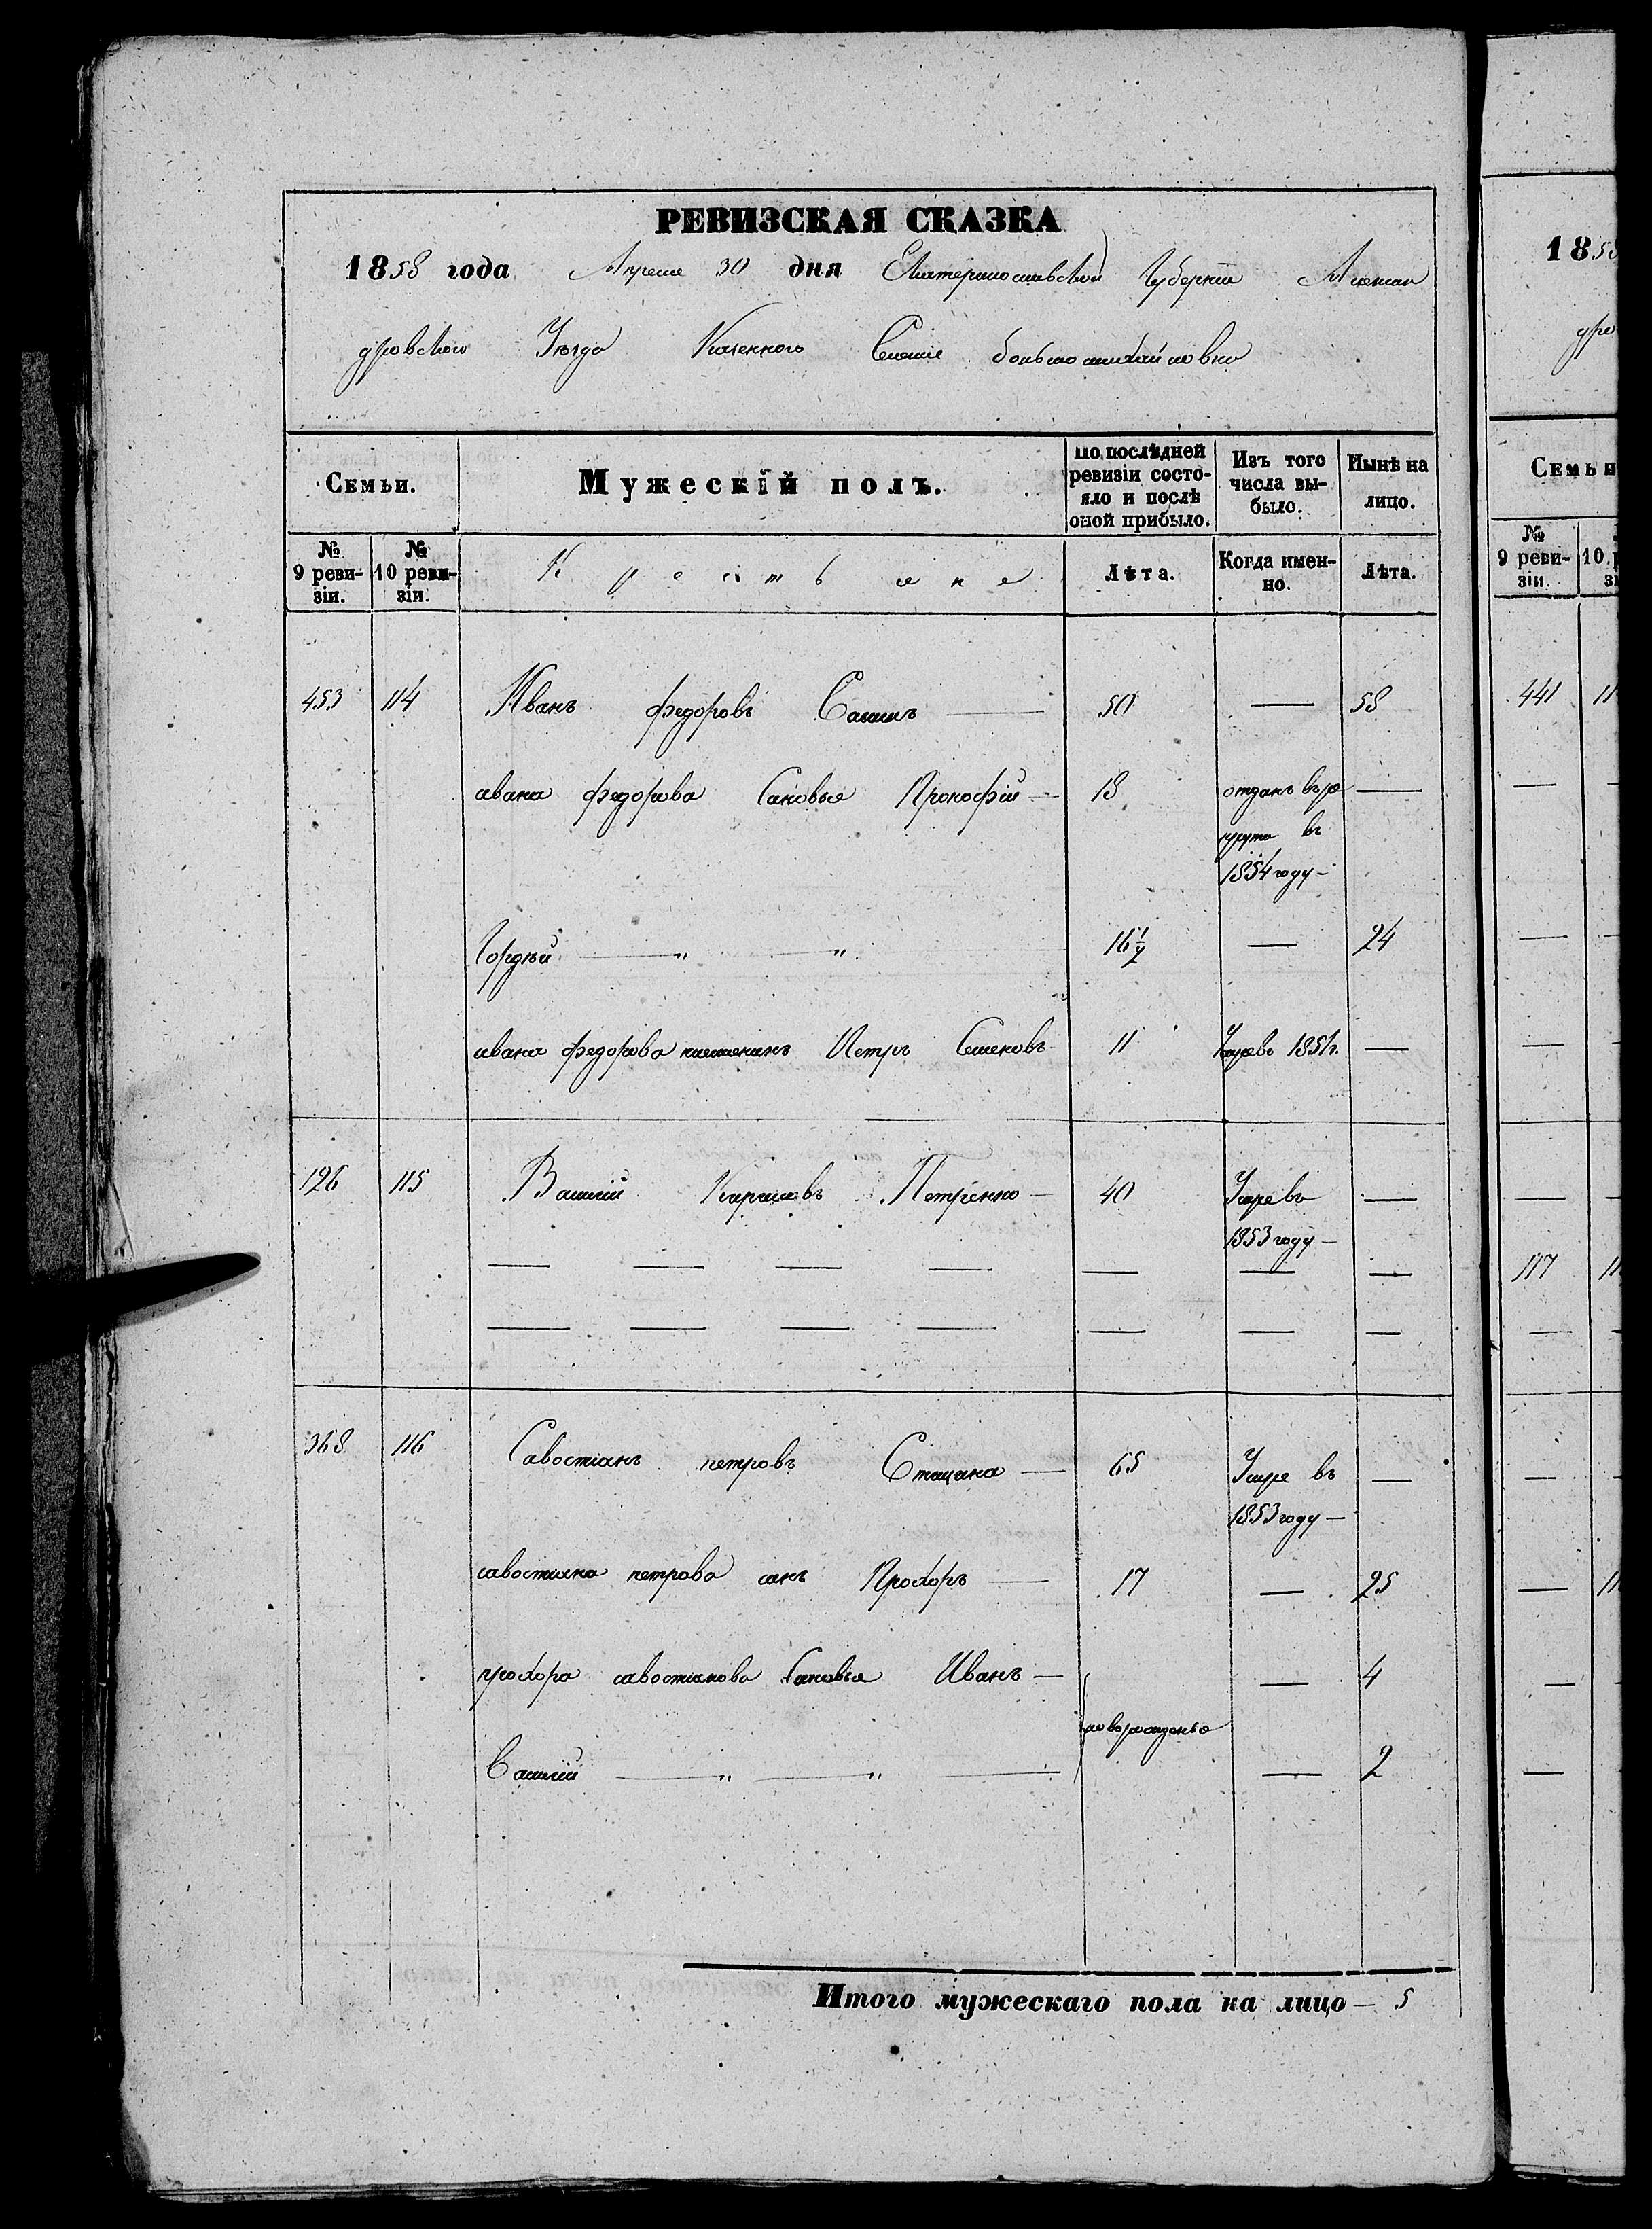 РЕВИЗСКАЯ СКАЗКА
1858 года Апреля 30 дня Екатеринославской Губернiи Алексан
дровского Уезда Казенного Селенiе большомихайловка
Семьи. Мужескiй полъ. По послѣдней ревизiи состояло и послѣ оной прибыло. Изъ того числа выбыло. Нынѣ на лицо.
№ 9 ревизiи. № 10 ревизiи. Крестьяне Лѣта. Когда именно. Лѣта.
453 114 Иванъ федоровъ 50 — 58
ивана федорова сановья Прокофiй — 18 отданъ въ ре
крута въ
1854 году —
Гордѣй — " — " — 16 1/2 — 24
ивана федорова племеникъ Петръ Семеновъ 11 Умре въ 1851 г. —
126 115 Василiй Кириловъ Петренко — 40 Умре въ —
1853 году —
368 116 Савостiанъ петровъ Стацина — 65 Умре въ —
1853 году —
савостиана петрова санъ Прохоръ — 17 — 25
прохора савостианова сановья Иванъ — — 4
новорожденые
Василiй — " — " — — 2
Итого мужескаго пола на лицо — 5
1858
дро
Семьи
№ 9 ревизiи. 10
441 11
117 11
— 11